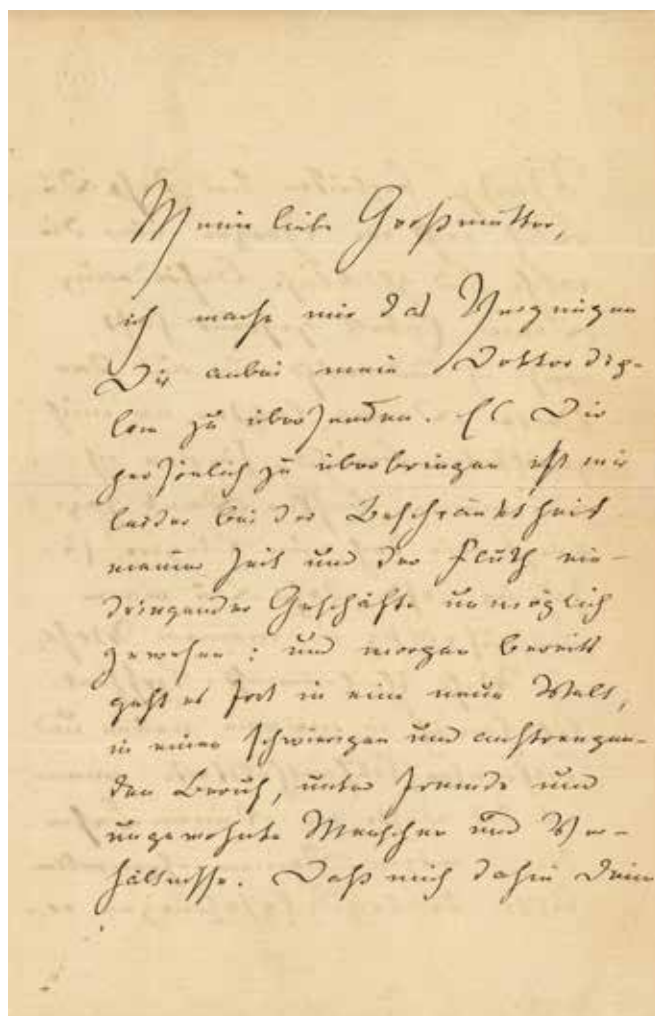 Meine liebe Großmutter,
ich mache mir das Vergnügen
Dir anbei mein Doktordip-
lom zu übersenden. Es Dir
persönlich zu überbringen ist mir
leider bei der Beschränktheit
meiner Zeit und der Fluth ein-
dringender Geschäfte unmöglich
gewesen: und morgen bereits
geht es fort in eine neue Welt,
in einen schwierigen und anstrengen-
den Beruf, unter fremde und
ungewohnte Menschen und Ver-
hältnisse. Daß mich dahin Dein